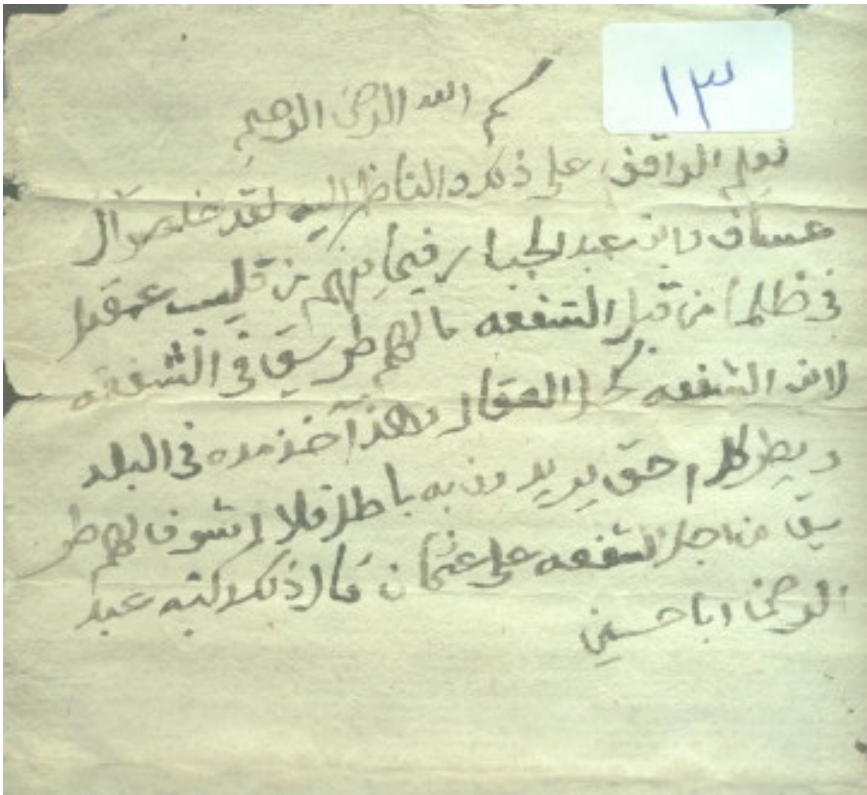 ١٣
بسم الله الرحمن الرحيم
يعلم الواقف على ذلك والناظر إليه لقد خاصم آل
عساف وابن عبد الجبار فيما من قليب
في من قبل الشفعه ما لهم طريق في الشفعه
لان الشفعه العقار وهذا آخذ مده في البلد
كلام حق يريدون به باطل فلا اشوف لهم طر
يق من اجل الشفعه على عثمان قال ذلك كتبه عبد
الرحمن اباحسين